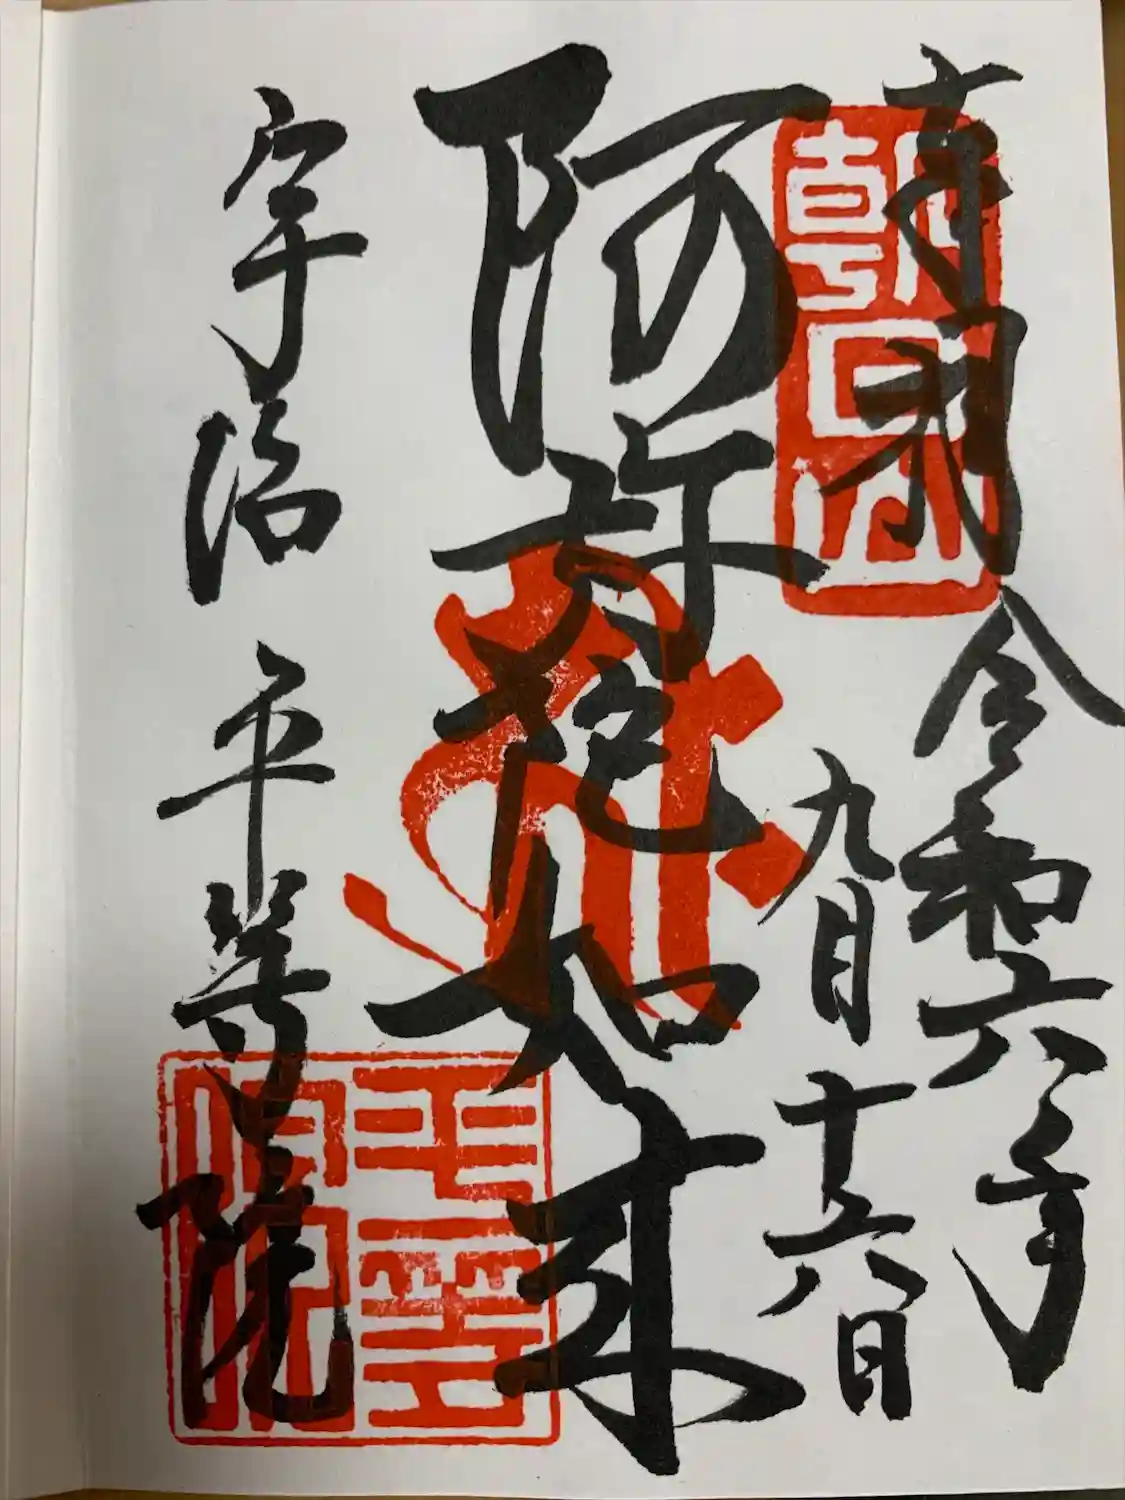 奉拝 令和六年
九月十六日
朝日山
阿弥陀如来
宇治 平等院
平等院